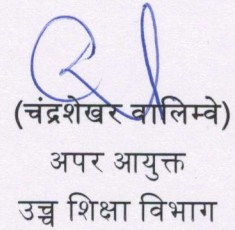 (चंद्रशेखर वालिम्वे)
अपर आयुक्त
उच्च शिक्षा विभाग